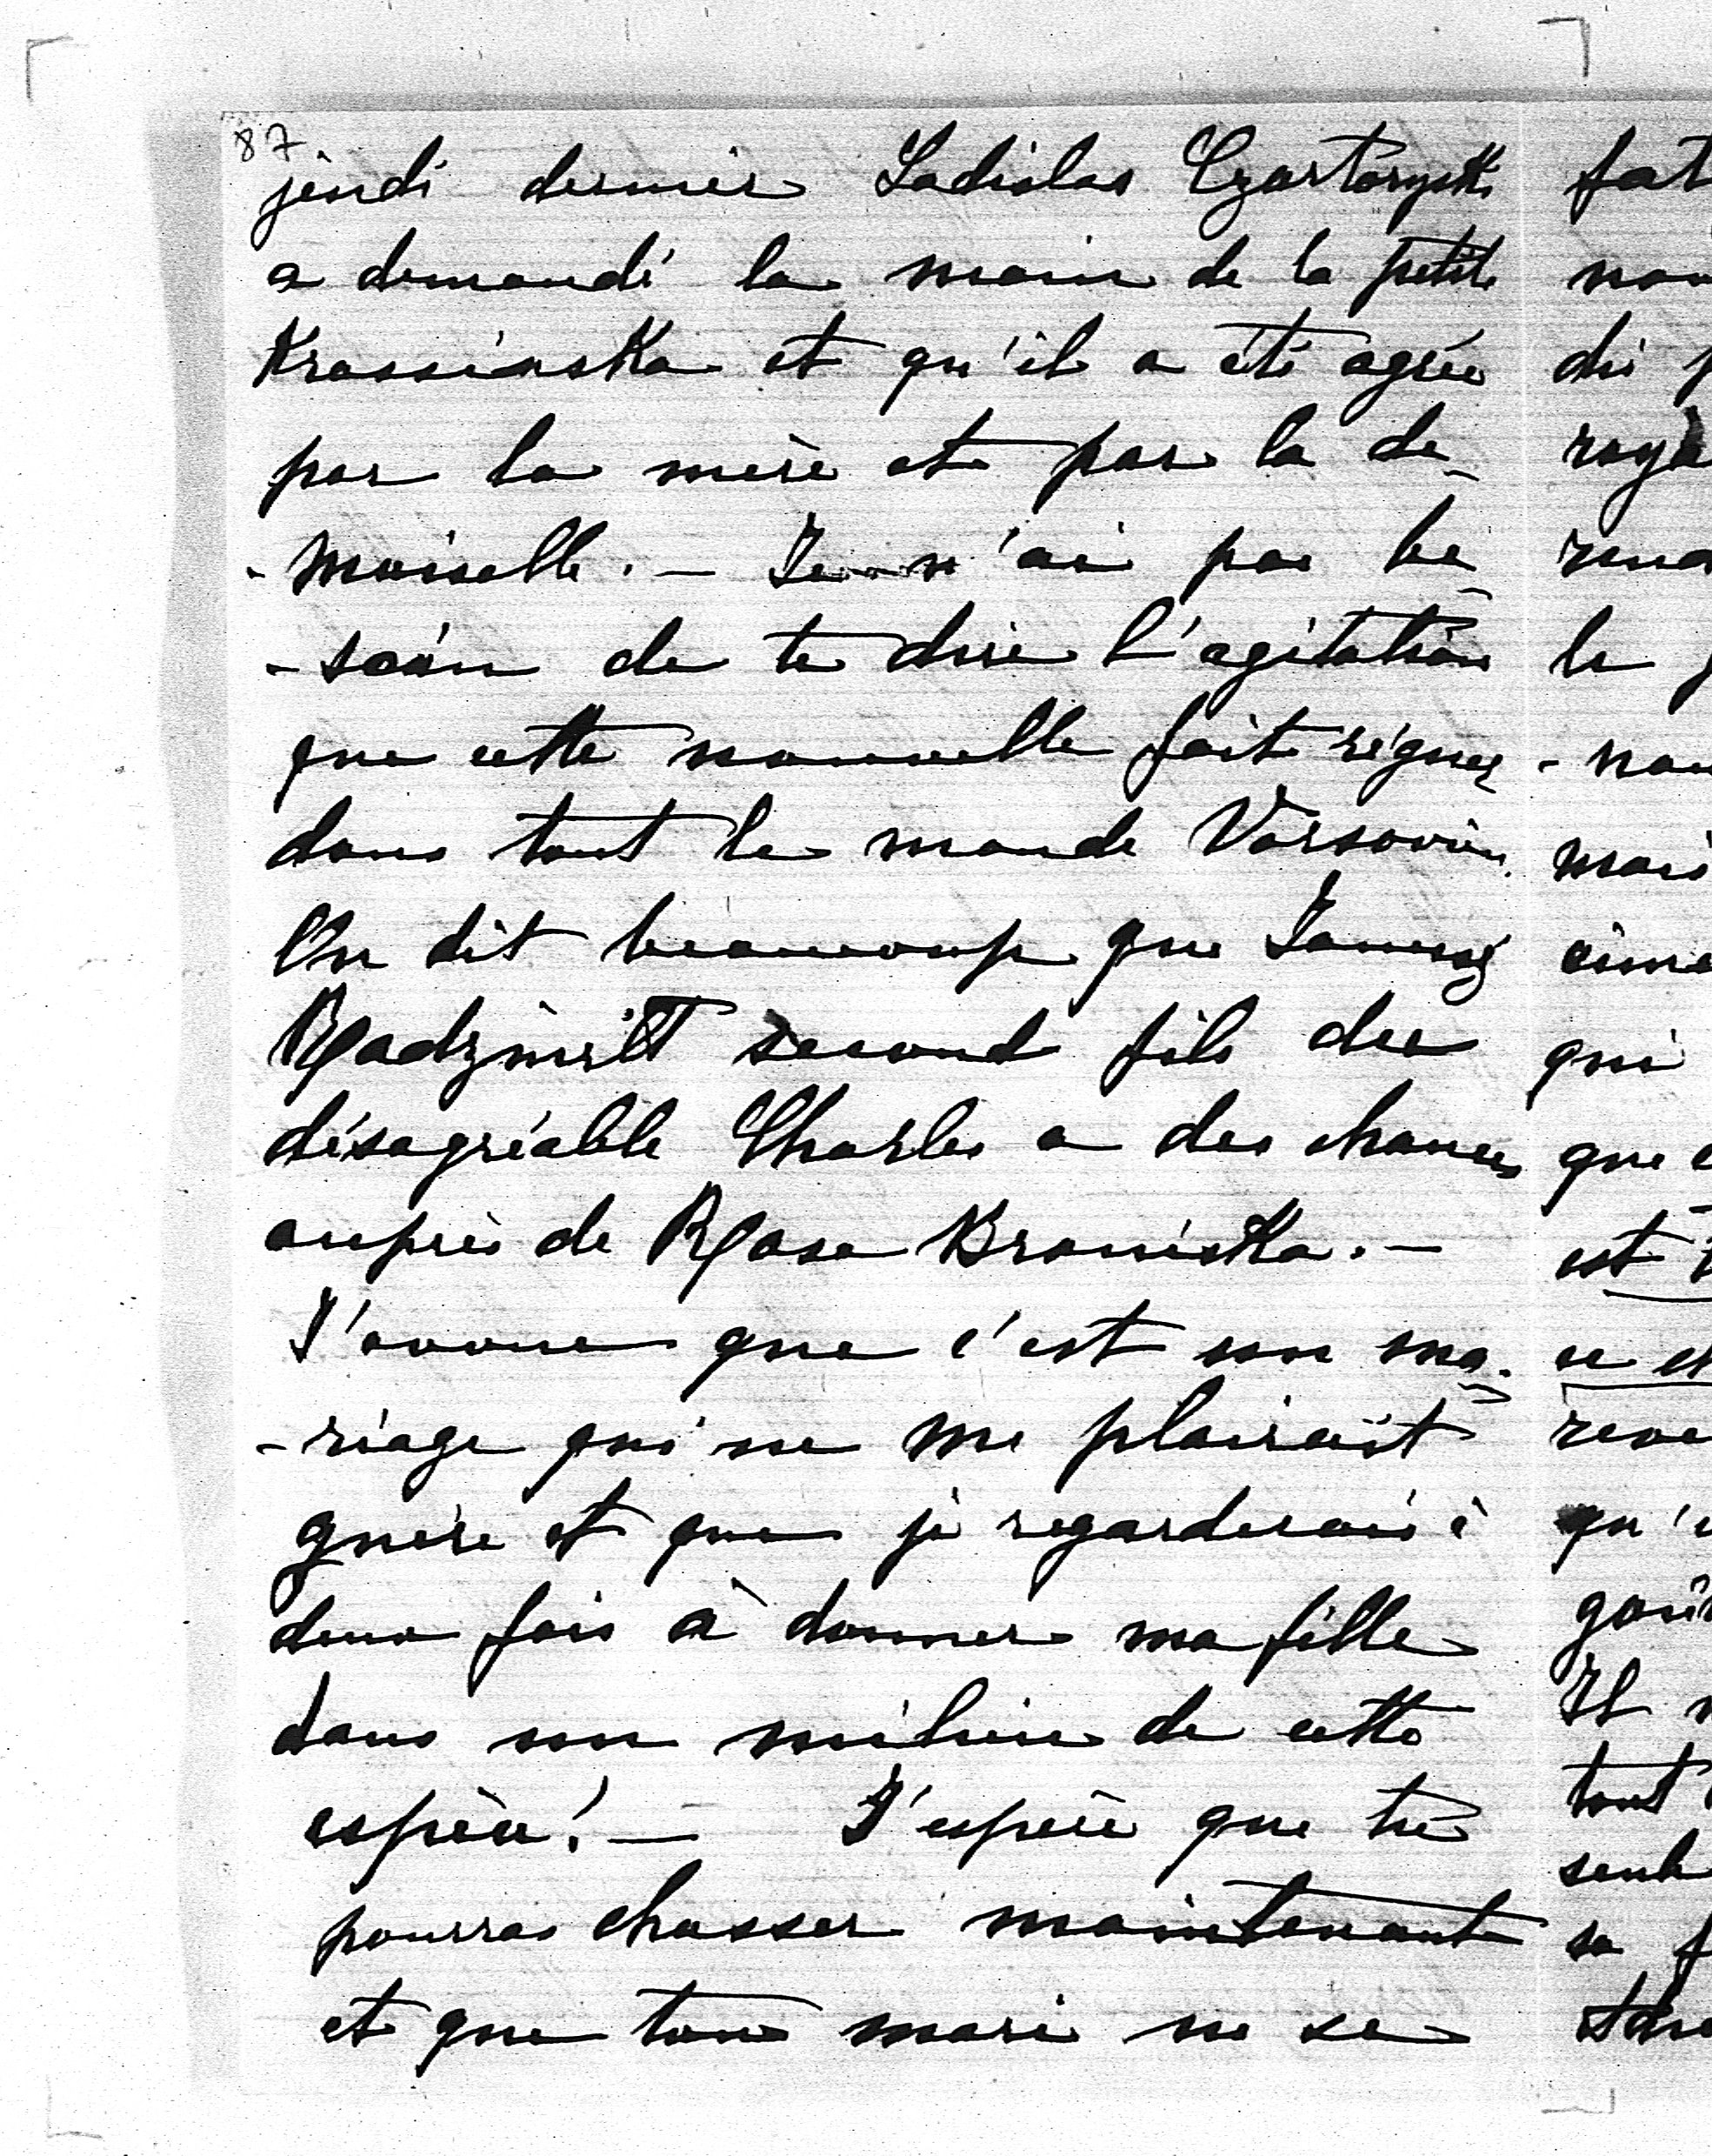 87
jeudi dernier Ladislas Czartoryski
a demandé la main de la petite
Krassinska et qu'il a été agrée
par la mère et par la de-
-moiselle. — Je n'ai pas be-
-soin de te dire l'agitation
que cette nouvelle fait régner
dans tout le monde Varsovien.
On dit beaucoup que Janusz
Radziwill second fils du
désagréable Charles a des chances
auprès de Rosa Braniska. —
J'avoue que c'est un ma-
-riage qui ne me plairait
guère et que je regarderais à
deux fois à donner ma fille
dans un milieu de cette
espèce! — J'espère que tu
pourras chasser maintenant
et que ton mari ne se
di
le
qui
que
est
Il
tout
sa